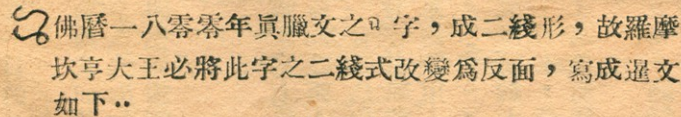 佛曆一八零零年眞臘文之 字，成二綫形，故羅摩
坎亨大王必將此字之二綫式改變爲反面，寫成暹文
如下：